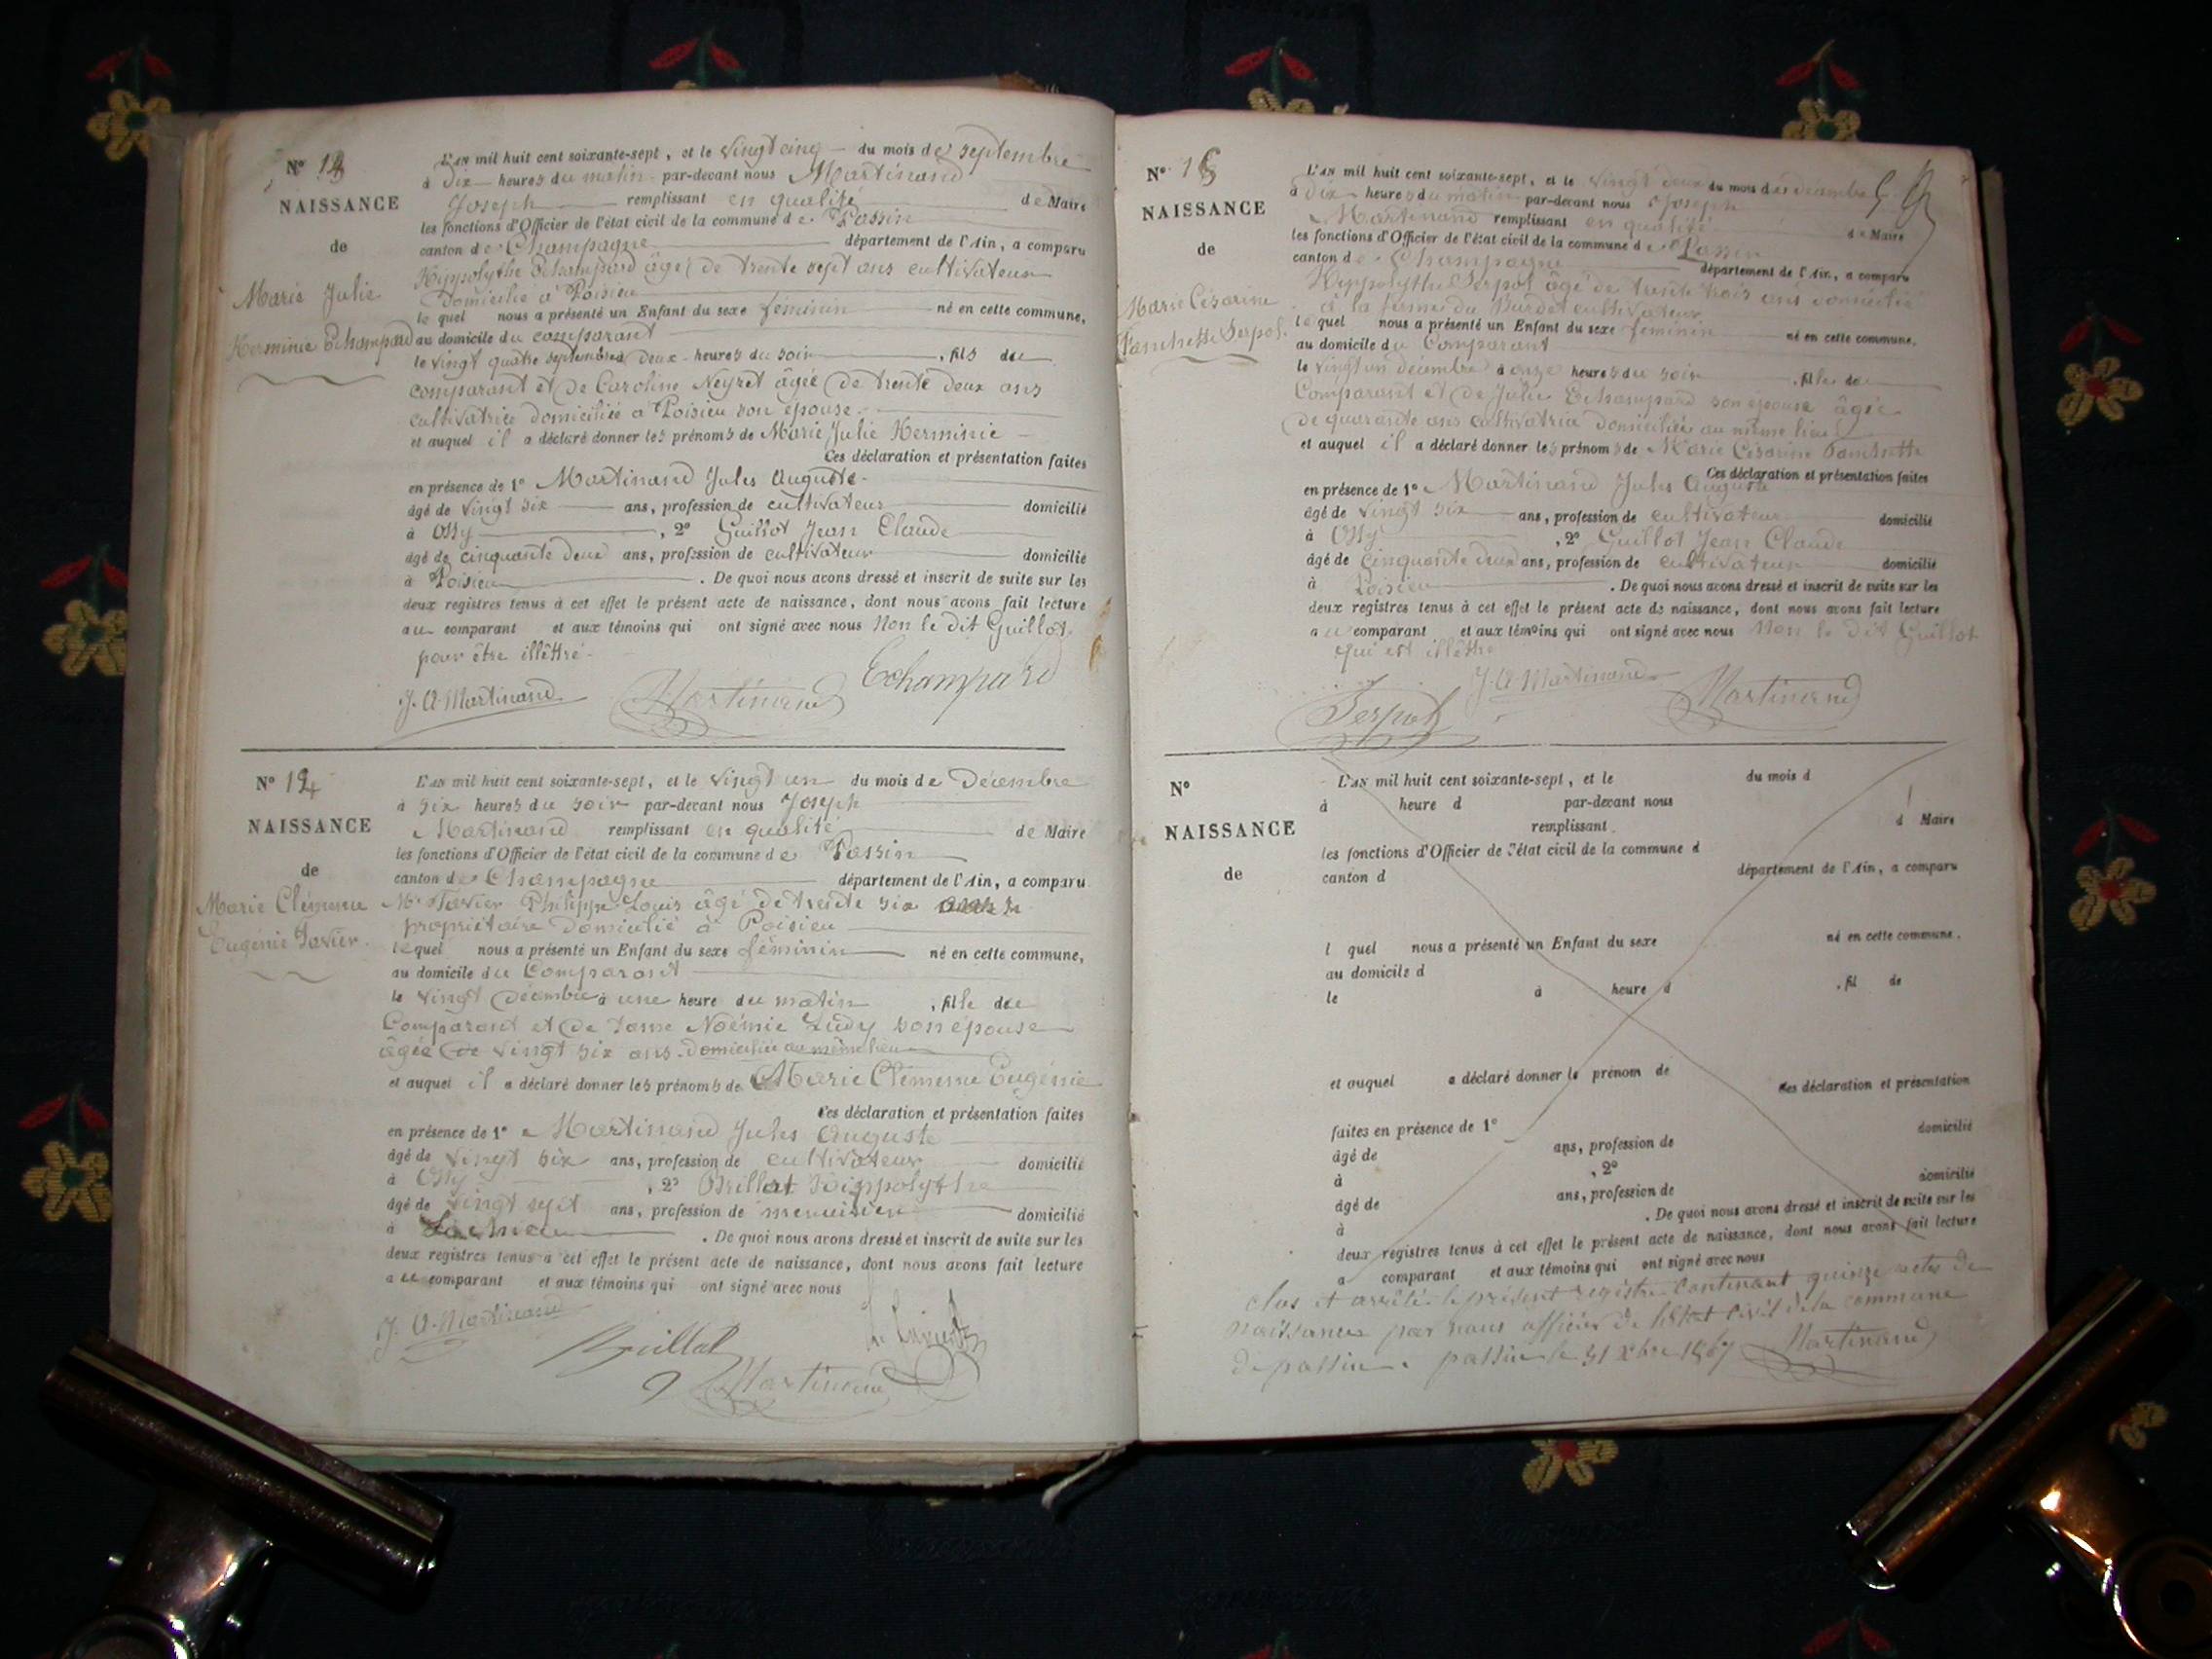 N° 13
NAISSANCE
de
Marie Julie
Herminie Echampard
L'AN mil huit cent soixante-sept, et le vingt cinq du mois de septembre
à dix heures du matin par-devant nous Martinand
Joseph remplissant en qualité de Maire
les fonctions d'Officier de l'état civil de la commune de Passin
canton de Champagne département de l'Ain, a comparu
Hippolythe Echampard âgé de trente sept ans cultivateur
domicilié à Poisieu
le quel nous a présenté un Enfant du sexe féminin né en cette commune,
au domicile du comparant
le vingt quatre septembre à deux heures du soir, fils du
comparant et de Caroline Neyret âgée de trente deux ans
cultivatrice domiciliée à Poisieu son épouse
et auquel il a déclaré donner les prénoms de Marie Julie Herminie
Ces déclaration et présentation faites
en présence de 1° Martinand Jules Auguste
âgé de vingt six ans, profession de cultivateur domicilié
à Ossy, 2° Guillot Jean Claude
âgé de cinquante deux ans, profession de cultivateur domicilié
à Poisieu. De quoi nous avons dressé et inscrit de suite sur les
deux registres tenus à cet effet le présent acte de naissance, dont nous avons fait lecture
au comparant et aux témoins qui ont signé avec nous Non le dit Guillot
pour être illéttré
J. A. Martinand Martinand Echampard
N° 14
NAISSANCE
de
Marie Clémence
Eugénie Tavier
L'AN mil huit cent soixante-sept, et le vingt un du mois de Décembre
à six heures du soir par-devant nous Joseph
Martinand remplissant en qualité de Maire
les fonctions d'Officier de l'état civil de la commune de Passin
canton de Champagne département de l'Ain, a comparu
Mr Tavier Philippe Louis âgé de trente six
propriétaire domicilié à Poisieu
le quel nous a présenté un Enfant du sexe féminin né en cette commune,
au domicile du Comparant
le vingt décembre à une heure du matin, fille du
Comparant et de Dame Noémie son épouse
âgée de vingt six ans domiciliée au même lieu
et auquel il a déclaré donner les prénoms de Marie Clémence Eugénie
Ces déclaration et présentation faites
en présence de 1° Martinand Jules Auguste
âgé de vingt six ans, profession de cultivateur domicilié
à Ossy, 2° Brillat Hippolythe
âgé de vingt sept ans, profession de menuisier domicilié
à. De quoi nous avons dressé et inscrit de suite sur les
deux registres tenus à cet effet le présent acte de naissance, dont nous avons fait lecture
au comparant et aux témoins qui ont signé avec nous
J. A. Martinand
Brillat
Martinand
N° 15
NAISSANCE
de
Marie Césarine
Fanchette Serpol
L'AN mil huit cent soixante-sept, et le vingt deux du mois de décembre
à dix heures du matin par-devant nous Joseph
Martinand remplissant en qualité de Maire
les fonctions d'Officier de l'état civil de la commune de Passin
canton de Champagne département de l'Ain, a comparu
Hippolythe Serpol âgé de trente trois ans domicilié
à la ferme du Burdet cultivateur
le quel nous a présenté un Enfant du sexe féminin né en cette commune,
au domicile du Comparant
le vingt un décembre à onze heures du soir, fille du
Comparant et de Julie Echampard son épouse âgée
de quarante ans cultivatrice domiciliée au même lieu
et auquel il a déclaré donner les prénoms de Marie Césarine Fanchette
Ces déclaration et présentation faites
en présence de 1° Martinand Jules Auguste
âgé de vingt six ans, profession de cultivateur domicilié
à Ossy, 2° Guillot Jean Claude
âgé de cinquante deux ans, profession de cultivateur domicilié
à Poisieu. De quoi nous avons dressé et inscrit de suite sur les
deux registres tenus à cet effet le présent acte de naissance, dont nous avons fait lecture
au comparant et aux témoins qui ont signé avec nous Non le dit Guillot
qui est illéttré
Serpol J. A. Martinand Martinand
N°
NAISSANCE
de
L'AN mil huit cent soixante-sept, et le du mois d
à heure d par-devant nous
remplissant d Maire
les fonctions d'Officier de l'état civil de la commune d
canton d département de l'Ain, a comparu
l quel nous a présenté un Enfant du sexe né en cette commune,
au domicile d
le à heure d, fil de
et auquel a déclaré donner le prénom de
Ces déclaration et présentation
faites en présence de 1°
âgé de ans, profession de domicilié
à, 2°
âgé de ans, profession de domicilié
à. De quoi nous avons dressé et inscrit de suite sur les
deux registres tenus à cet effet le présent acte de naissance, dont nous avons fait lecture
a comparant et aux témoins qui ont signé avec nous
Clos et arrêté le présent registre contenant quinze actes de
naissances par nous officier de l'état civil de la commune
de passin. passin le 31 Xbre 1867 Martinand